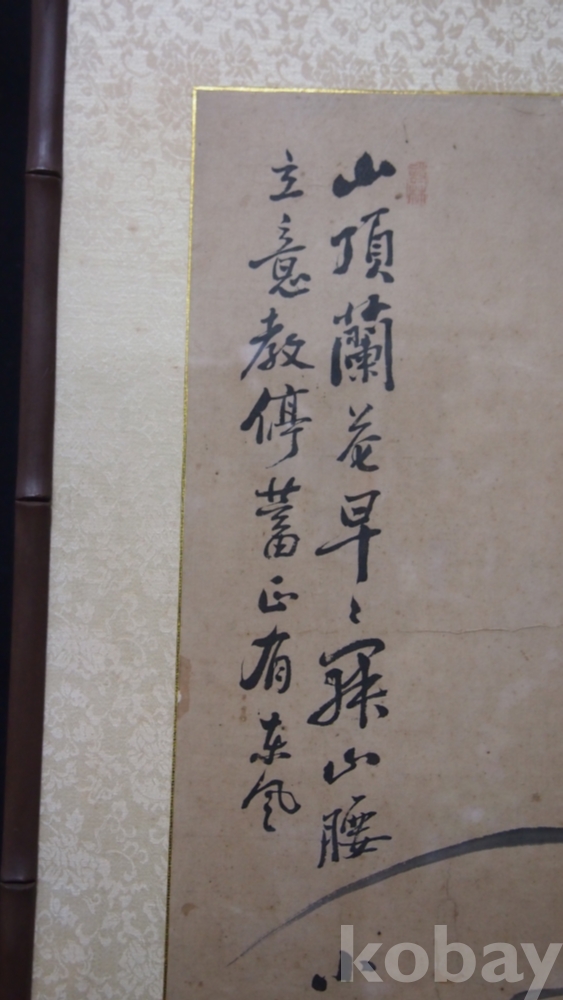 山頂蘭花早〻開山腰
小
立意教停蓄正有東風
kobay